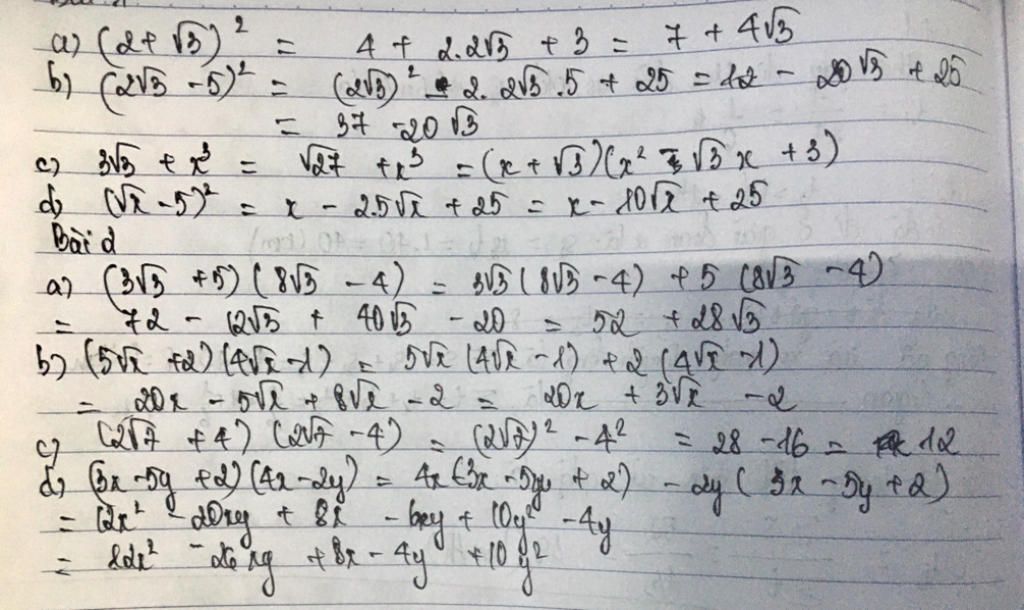 a) (2 + √3)² = 4 + 2.2√3 + 3 = 7 + 4√3
b) (2√3 - 5)² = (2√3)² - 2. 2√3 .5 + 25 = 12 - 20√3 + 25
= 37 - 20√3
c) 3√3 + x³ = √27 + x³ = (x + √3)(x² - √3 x + 3)
d) (√x - 5)² = x - 2.5√x + 25 = x - 10√x + 25
Bài 2
a) (3√3 + 5)(8√3 - 4) = 3√3(8√3 - 4) + 5(8√3 - 4)
= 72 - 12√3 + 40√3 - 20 = 52 + 28√3
b) (5√x + 2)(4√x - 1) = 5√x (4√x - 1) + 2(4√x - 1)
= 20x - 5√x + 8√x - 2 = 20x + 3√x - 2
c) (2√7 + 4)(2√7 - 4) = (2√7)² - 4² = 28 - 16 = 12
d) (3x - 5y + 2)(4x - 2y) = 4x(3x - 5y + 2) - 2y(3x - 5y + 2)
= 12x² - 20xy + 8x - 6xy + 10y² - 4y
= 12x² - 26xy + 8x - 4y + 10y²